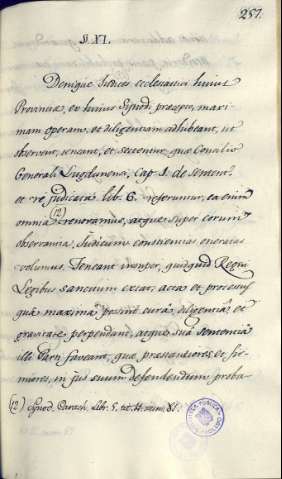 257.
§. XI.
Denique Judices ecclesiastici huius
Provinciæ, ex huius Synod. præcepto, maxi-
mam operam, et diligentiam adhibeant, ut
observent, teneant, et sectentur quæ Concilio
Generali Lugdunensi, Cap. 1. de sentent.
et re judicata lib. 6. referuntur, ea enim
omnia (12) renovamus, atque super eorum
observantia, Judicum conscientias oneratas
volumus. Teneant insuper, quidquid Regiis
Legibus sancitum extat, acta et processus
quâ maximâ possint curâ, diligentiâ, et
gravitate perpendant, atque suâ sententiâ
illi Parti faveant, quæ præstantiores et fir-
miores, in jus suum defendendum proba-
(12) Synod. Lib. 5. tit. 11. num. XI.